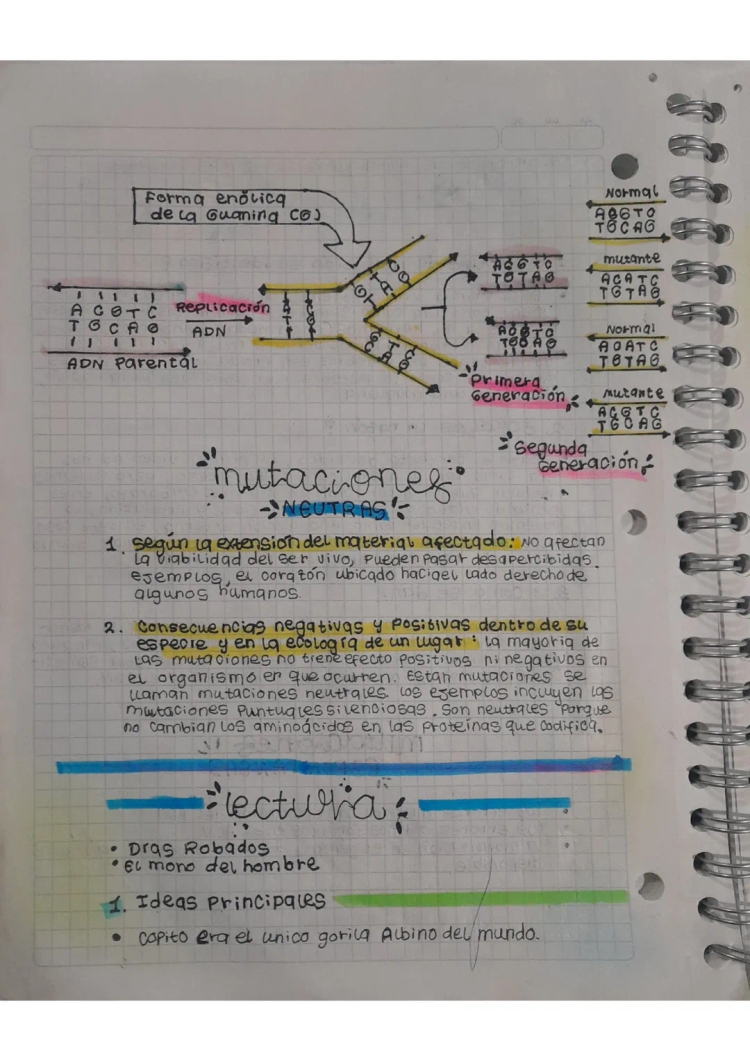 Forma enólica
de la Guanina (G)
Normal
ACGTC
TGCAG
mutante
ACATC
TGTAG
Normal
ACATC
TGTAG
mutante
ACGTC
TGCAG
ACGTC
TGTAG
ACGTC
TGCAG
A C G T C
T G C A G
ADN Parental
Replicación
ADN
Primera
Generación
Segunda
Generación
mutaciones
NEUTRAS
1. según la extensión del material afectado: No afectan
la viabilidad del ser vivo, pueden pasar desapercibidas.
ejemplos, el corazón ubicado haciael lado derecho de
algunos humanos.
2. Consecuencias negativas y Positivas dentro de su
especie y en la ecología de un lugar: la mayoria de
las mutaciones no tiene efecto positivos ni negativos en
el organismo en que ocurren. Estan mutaciones se
llaman mutaciones neutrales. los ejemplos incuyen las
mutaciones Puntuales silenciosas. Son neutrales porque
no cambian los aminoácidos en las proteinas que codifica.
lectura
• Dias Robados
• El mono del hombre
1. Ideas Principales
• copito era el unico gorila Albino del mundo.